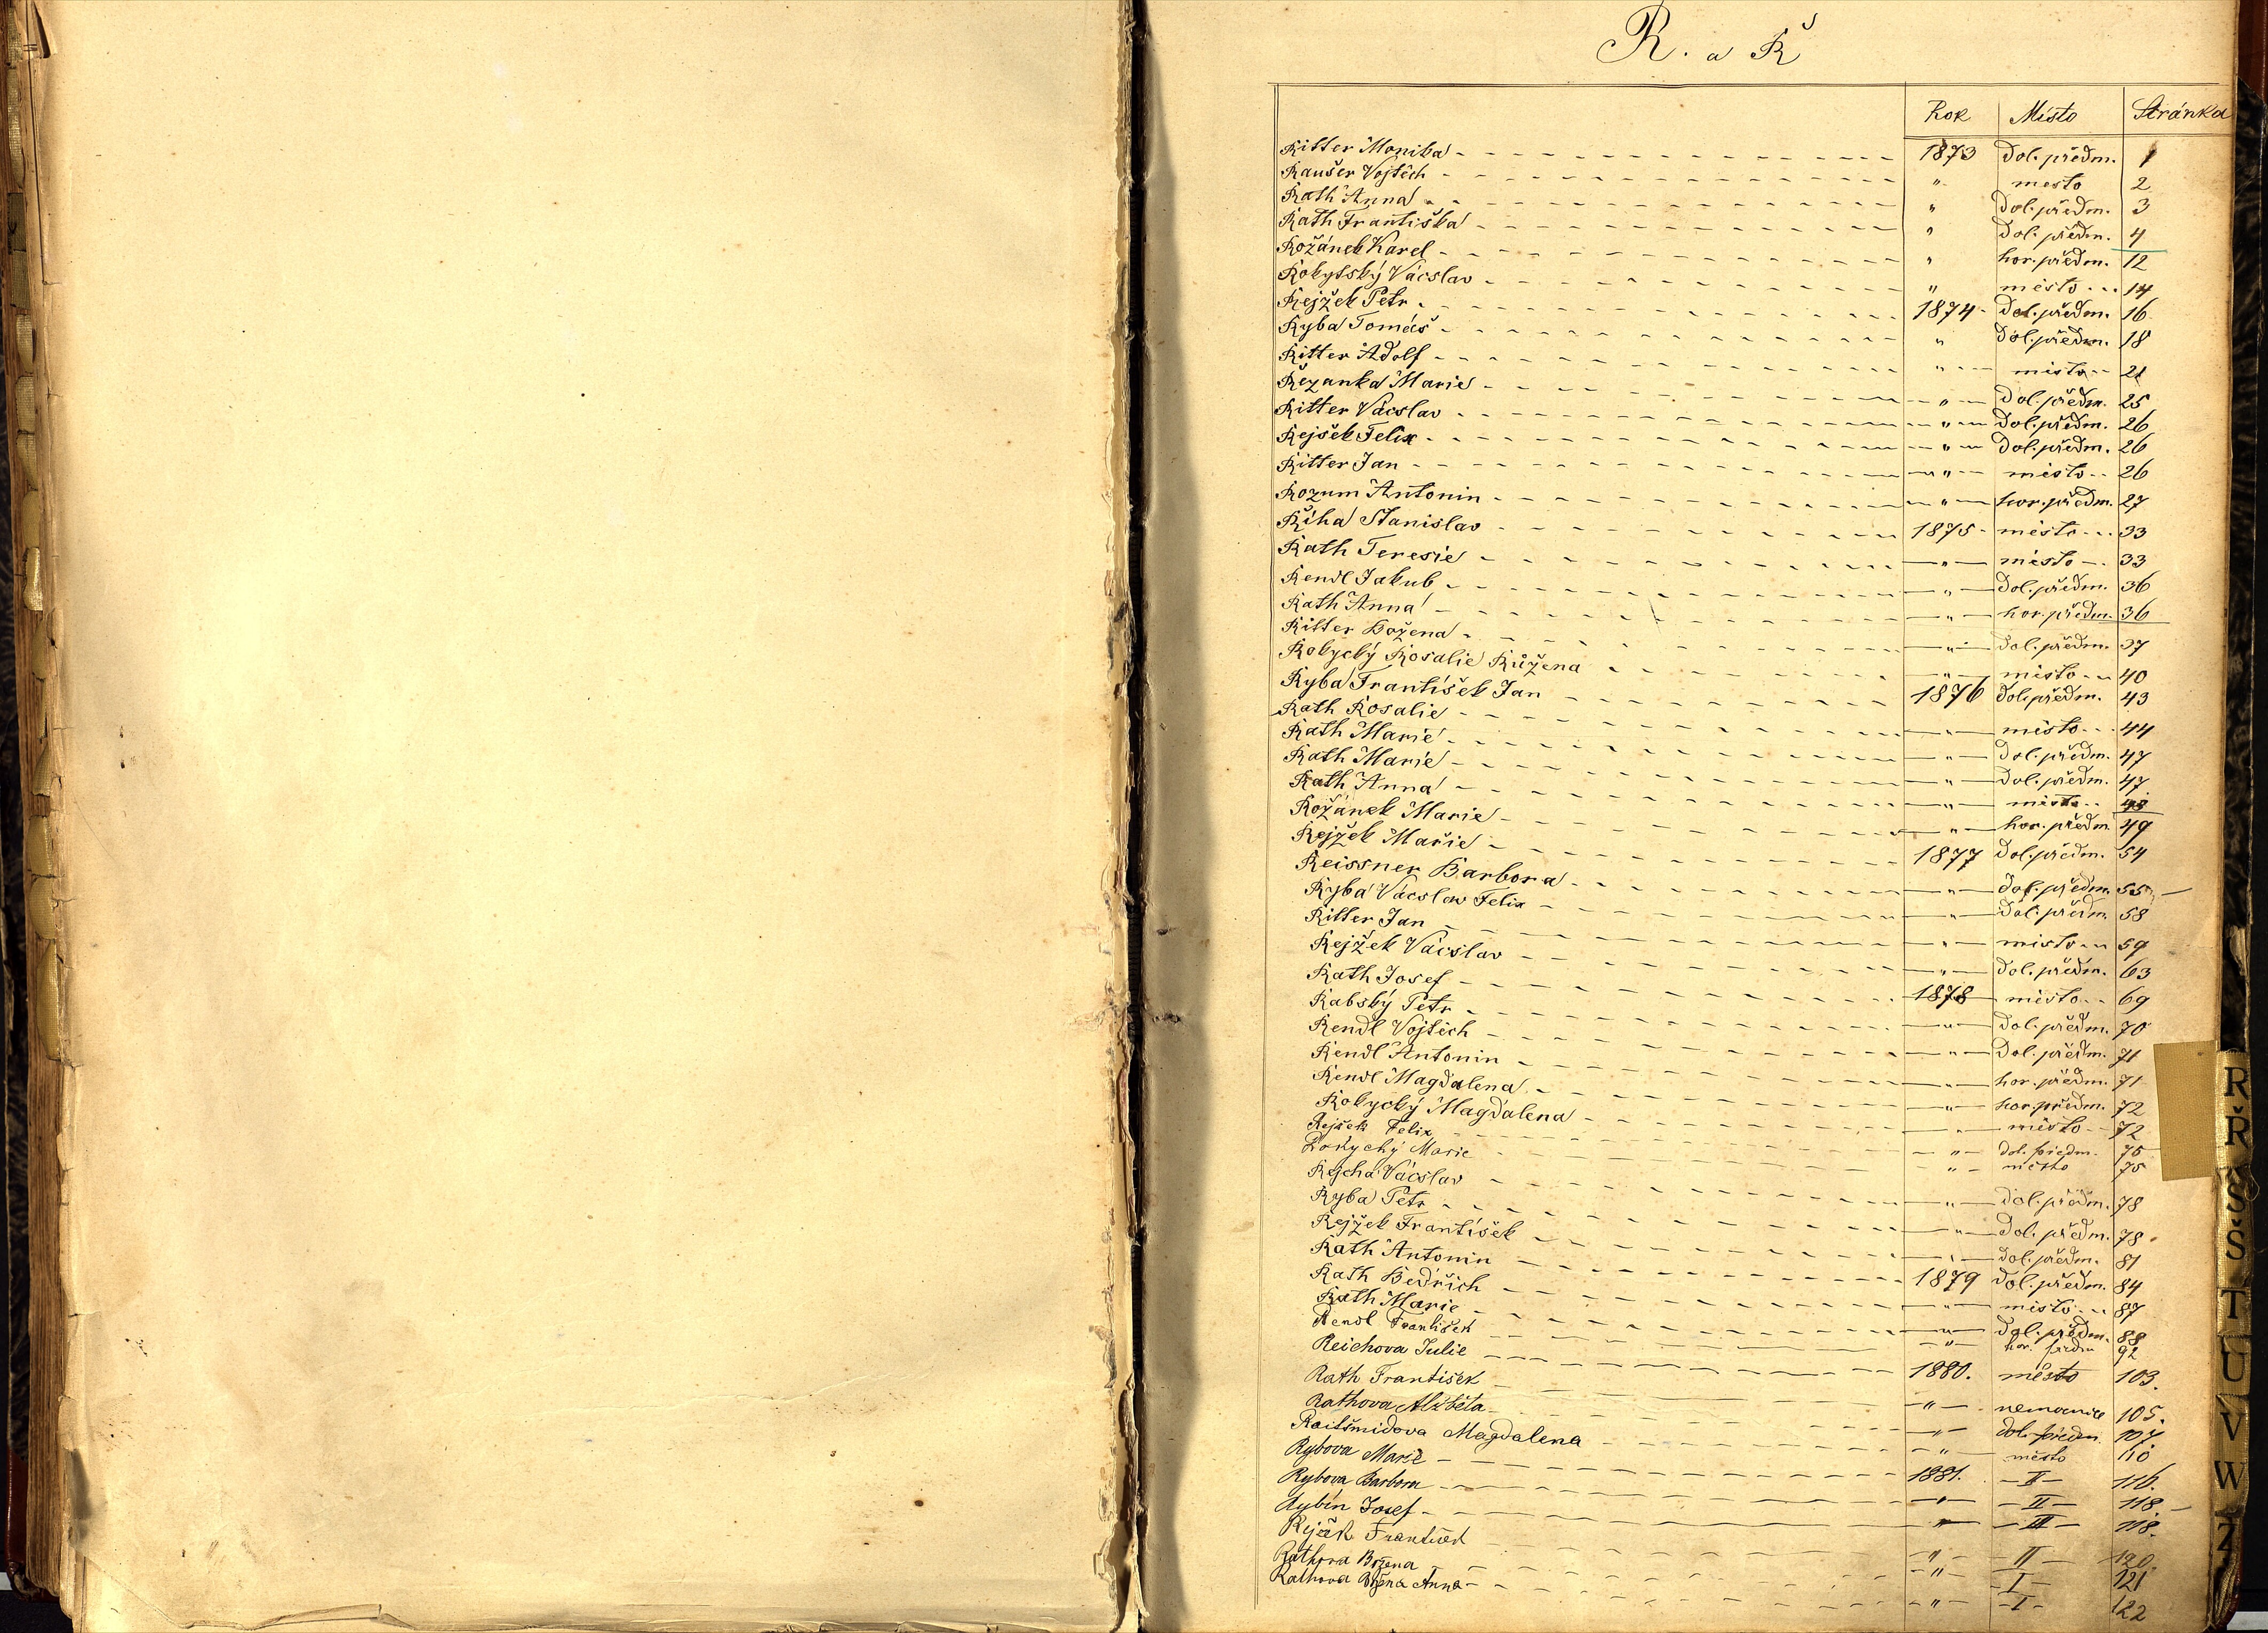 R. a Ř
Rok Místo Stránka
Ritter Monika 1873 Dol. předm. 1
Raušer Vojtěch " město 2
Rath Anna " Dol. předm. 3
Rath Františka " Dol. předm. 4
Rožánek Karel " hor. předm. 12
Rokytský Václav " město 14
Rejžek Petr 1874 Dol. předm. 16
Ryba Tomáš " Dol. předm. 18
Ritter Adolf " město 21
Řezanka Marie " Dol. předm. 25
Ritter Vácslav " Dol. předm. 26
Rejšek Felix " Dol. předm. 26
Ritter Jan " město 26
Rozum Antonin " hor. předm. 27
Říha Stanislav 1875 město 33
Rath Teresie " město 33
Rendl Jakub " Dol. předm. 36
Rath Anna " hor. předm. 36
Ritter Božena " Dol. předm. 37
Rokycký Rosalie Růžena " město 40
Ryba František Jan 1876 Dol. předm. 43
Rath Rosalie " město 44
Rath Marie " Dol. předm. 47
Rath Marie " Dol. předm. 47
Rath Anna " město
Rožánek Marie " hor. předm. 49
Rejžek Marie 1877 Dol. předm. 54
Reissner Barbora " Dol. předm. 55
Ryba Vácslav Felix " Dol. předm. 58
Ritter Jan " město 59
Rejžek Vácslav " Dol. předm. 63
Rath Josef 1878 město 69
Rabský Petr " Dol. předm. 70
Rendl Vojtěch " Dol. předm. 71
Rendl Antonin " hor. předm. 71
Rendl Magdalena " hor. předm. 72
Rokycký Magdalena " město 72
Rejšek Felix " dol. předm. 75
Rokychý Marie " město 75
Rejcha Vácslav " Dol. předm. 78
Ryba Petr " Dol. předm. 78
Rejžek František " Dol. předm. 81
Rath Antonin 1879 Dol. předm. 84
Rath Bedřich " město 87
Rath Marie " Dol. předm. 88
Rendl František " hor. předm 92
Reichova Julie 1880. město 103.
Rath František " nemanice 105.
Rathova Alžběta " dol. předm. 107
Raitšmidova Magdalena " město 110
Rybova Marie 1881. II 116.
Rybova Barbora " II 118.
Rybín Josef " III 118.
Rejžek František " II 120.
Rathova Božena " I 121
Rathova Božena Anna " I 122
R
Ř
S
Š
T
U
V
W
Z